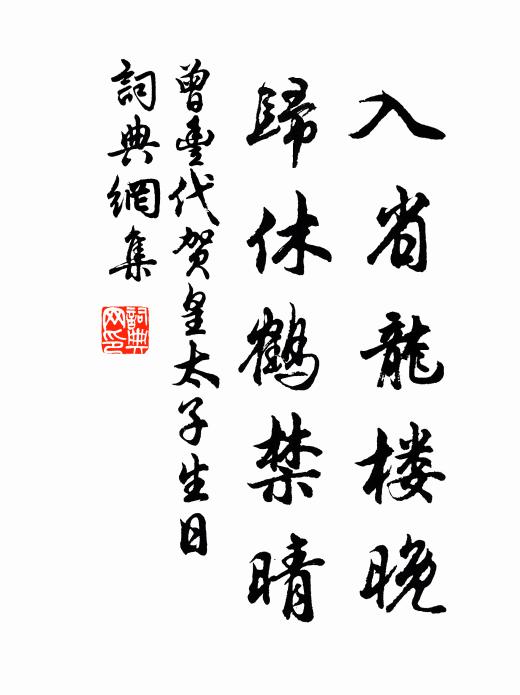 入省龍楼晚
歸休鶴禁晴
曾豊代贺皇太子生日
詞典網集
詞典
网印